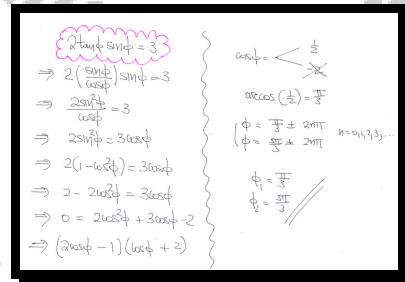 2tanϕ sinϕ = 3
⇒ 2(sinϕ/cosϕ) sinϕ = 3
⇒ 2sin²ϕ/cosϕ = 3
⇒ 2sin²ϕ = 3cosϕ
⇒ 2(1-cos²ϕ) = 3cosϕ
⇒ 2 - 2cos²ϕ = 3cosϕ
⇒ 0 = 2cos²ϕ + 3cosϕ - 2
⇒ (2cosϕ - 1)(cosϕ + 2)
cosϕ = < 1/2
-2
arccos(1/2) = π/3
ϕ = π/3 ± 2nπ
ϕ = 5π/3 ± 2nπ n=0,1,2,3,...
ϕ₁ = π/3
ϕ₂ = 5π/3